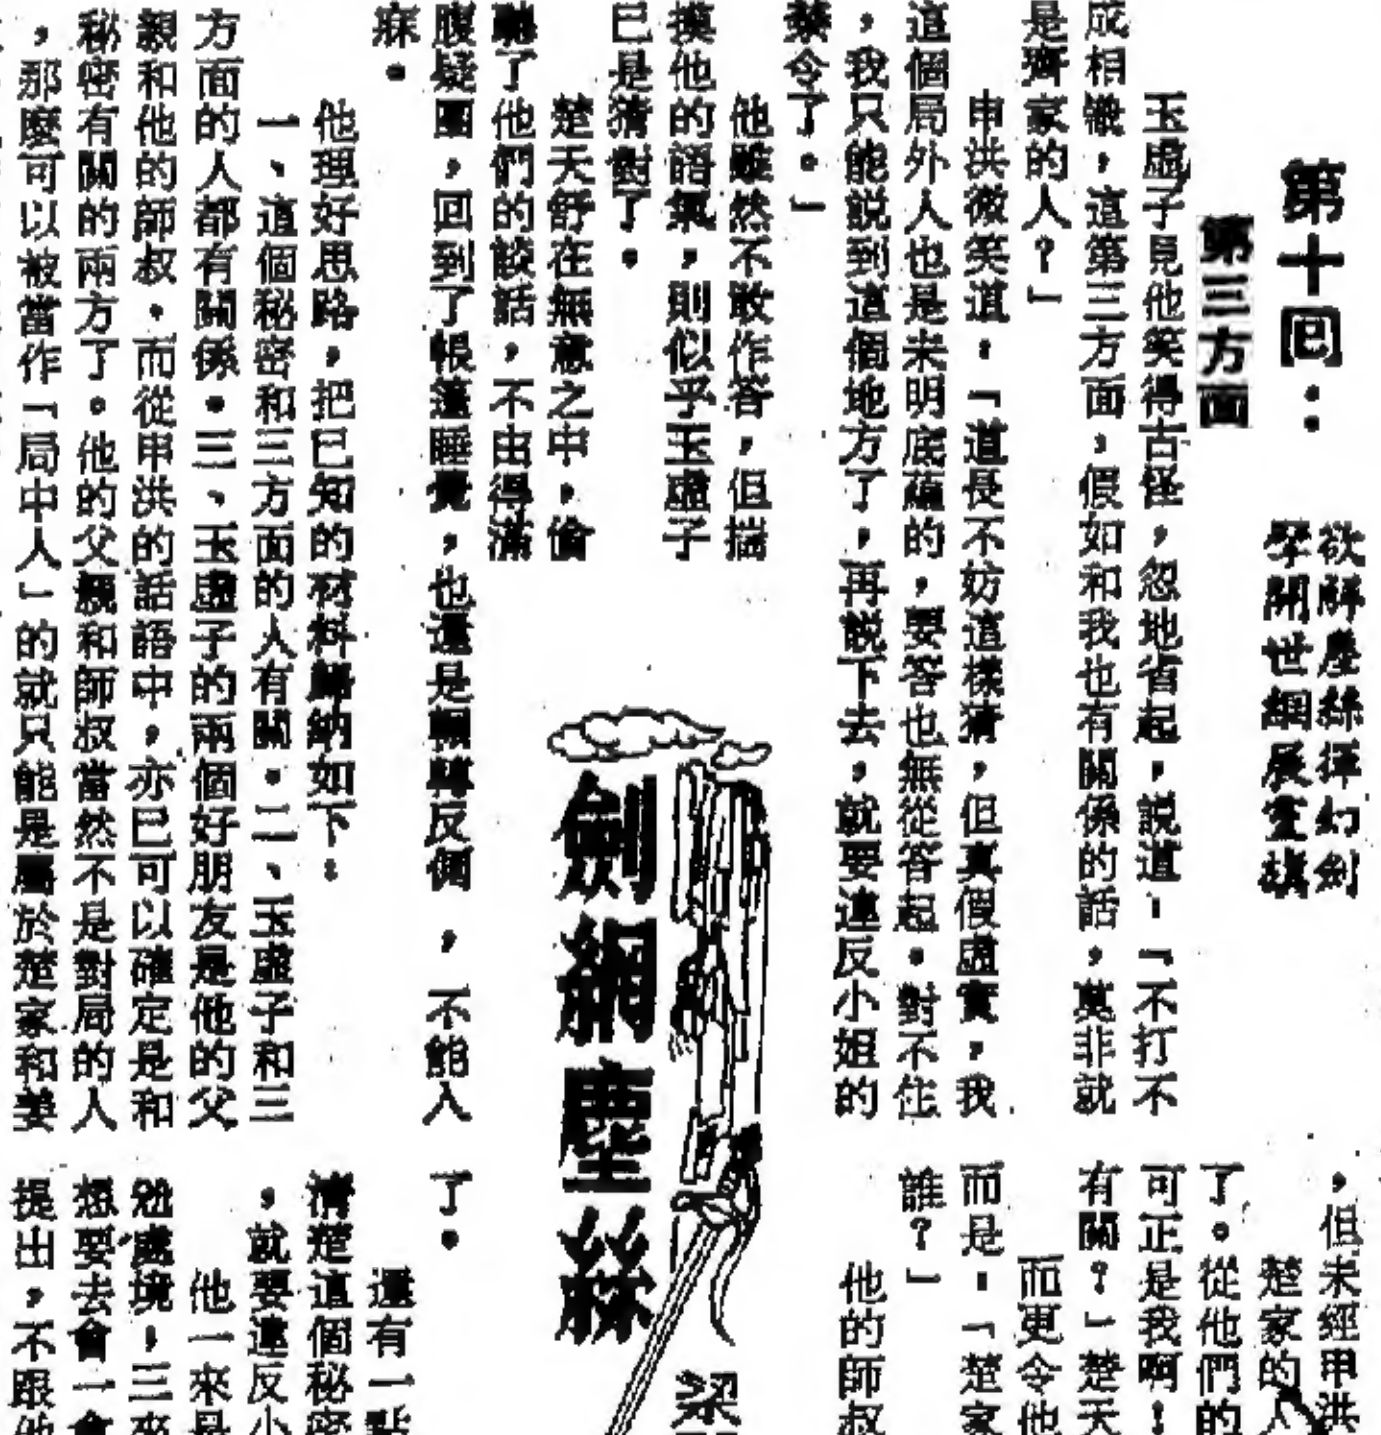 第十回：
欲解塵絲揮幻劍
擘開世網展靈旗
第三方面
玉虛子見他笑得古怪，忽地省起，說道：「不打不
成相識，這第三方面，假如和我也有關係的話，莫非就
是齊家的人？」
申洪微笑道：「道長不妨這樣猜，但真假虛實，我
這個局外人也是未明底蘊的，要答也無從答起。對不住
，我只能說到這個地方了，再說下去，就要違反小姐的
禁令了。」
他雖然不敢作答，但揣
摸他的語氣，則似乎玉虛子
已是猜對了。
楚天舒在無意之中，偷
聽了他們的談話，不由得滿
腹疑團，回到了帳篷睡覺，也還是輾轉反側，不能入
寐。
他理好思路，把已知的材料歸納如下：
一、這個秘密和三方面的人有關。二、玉虛子和三
方面的人都有關係。三、玉虛子的兩個好朋友是他的父
親和他的師叔，而從申洪的話語中，亦已可以確定是和
秘密有關的兩方了。他的父親和師叔當然不是對局的人
，那麼可以被當作「局中人」的就只能是屬於楚家和姜
劍網塵絲
梁
，但未經申洪
楚家的人
了。從他們的
可正是我啊！
有關？」楚天
而更令他
而是：「楚家
誰？」
他的師叔
了。
還有一點
清楚這個秘密
，就要違反小
他一來是
處境，三來
想要去會一會
提出，不跟他